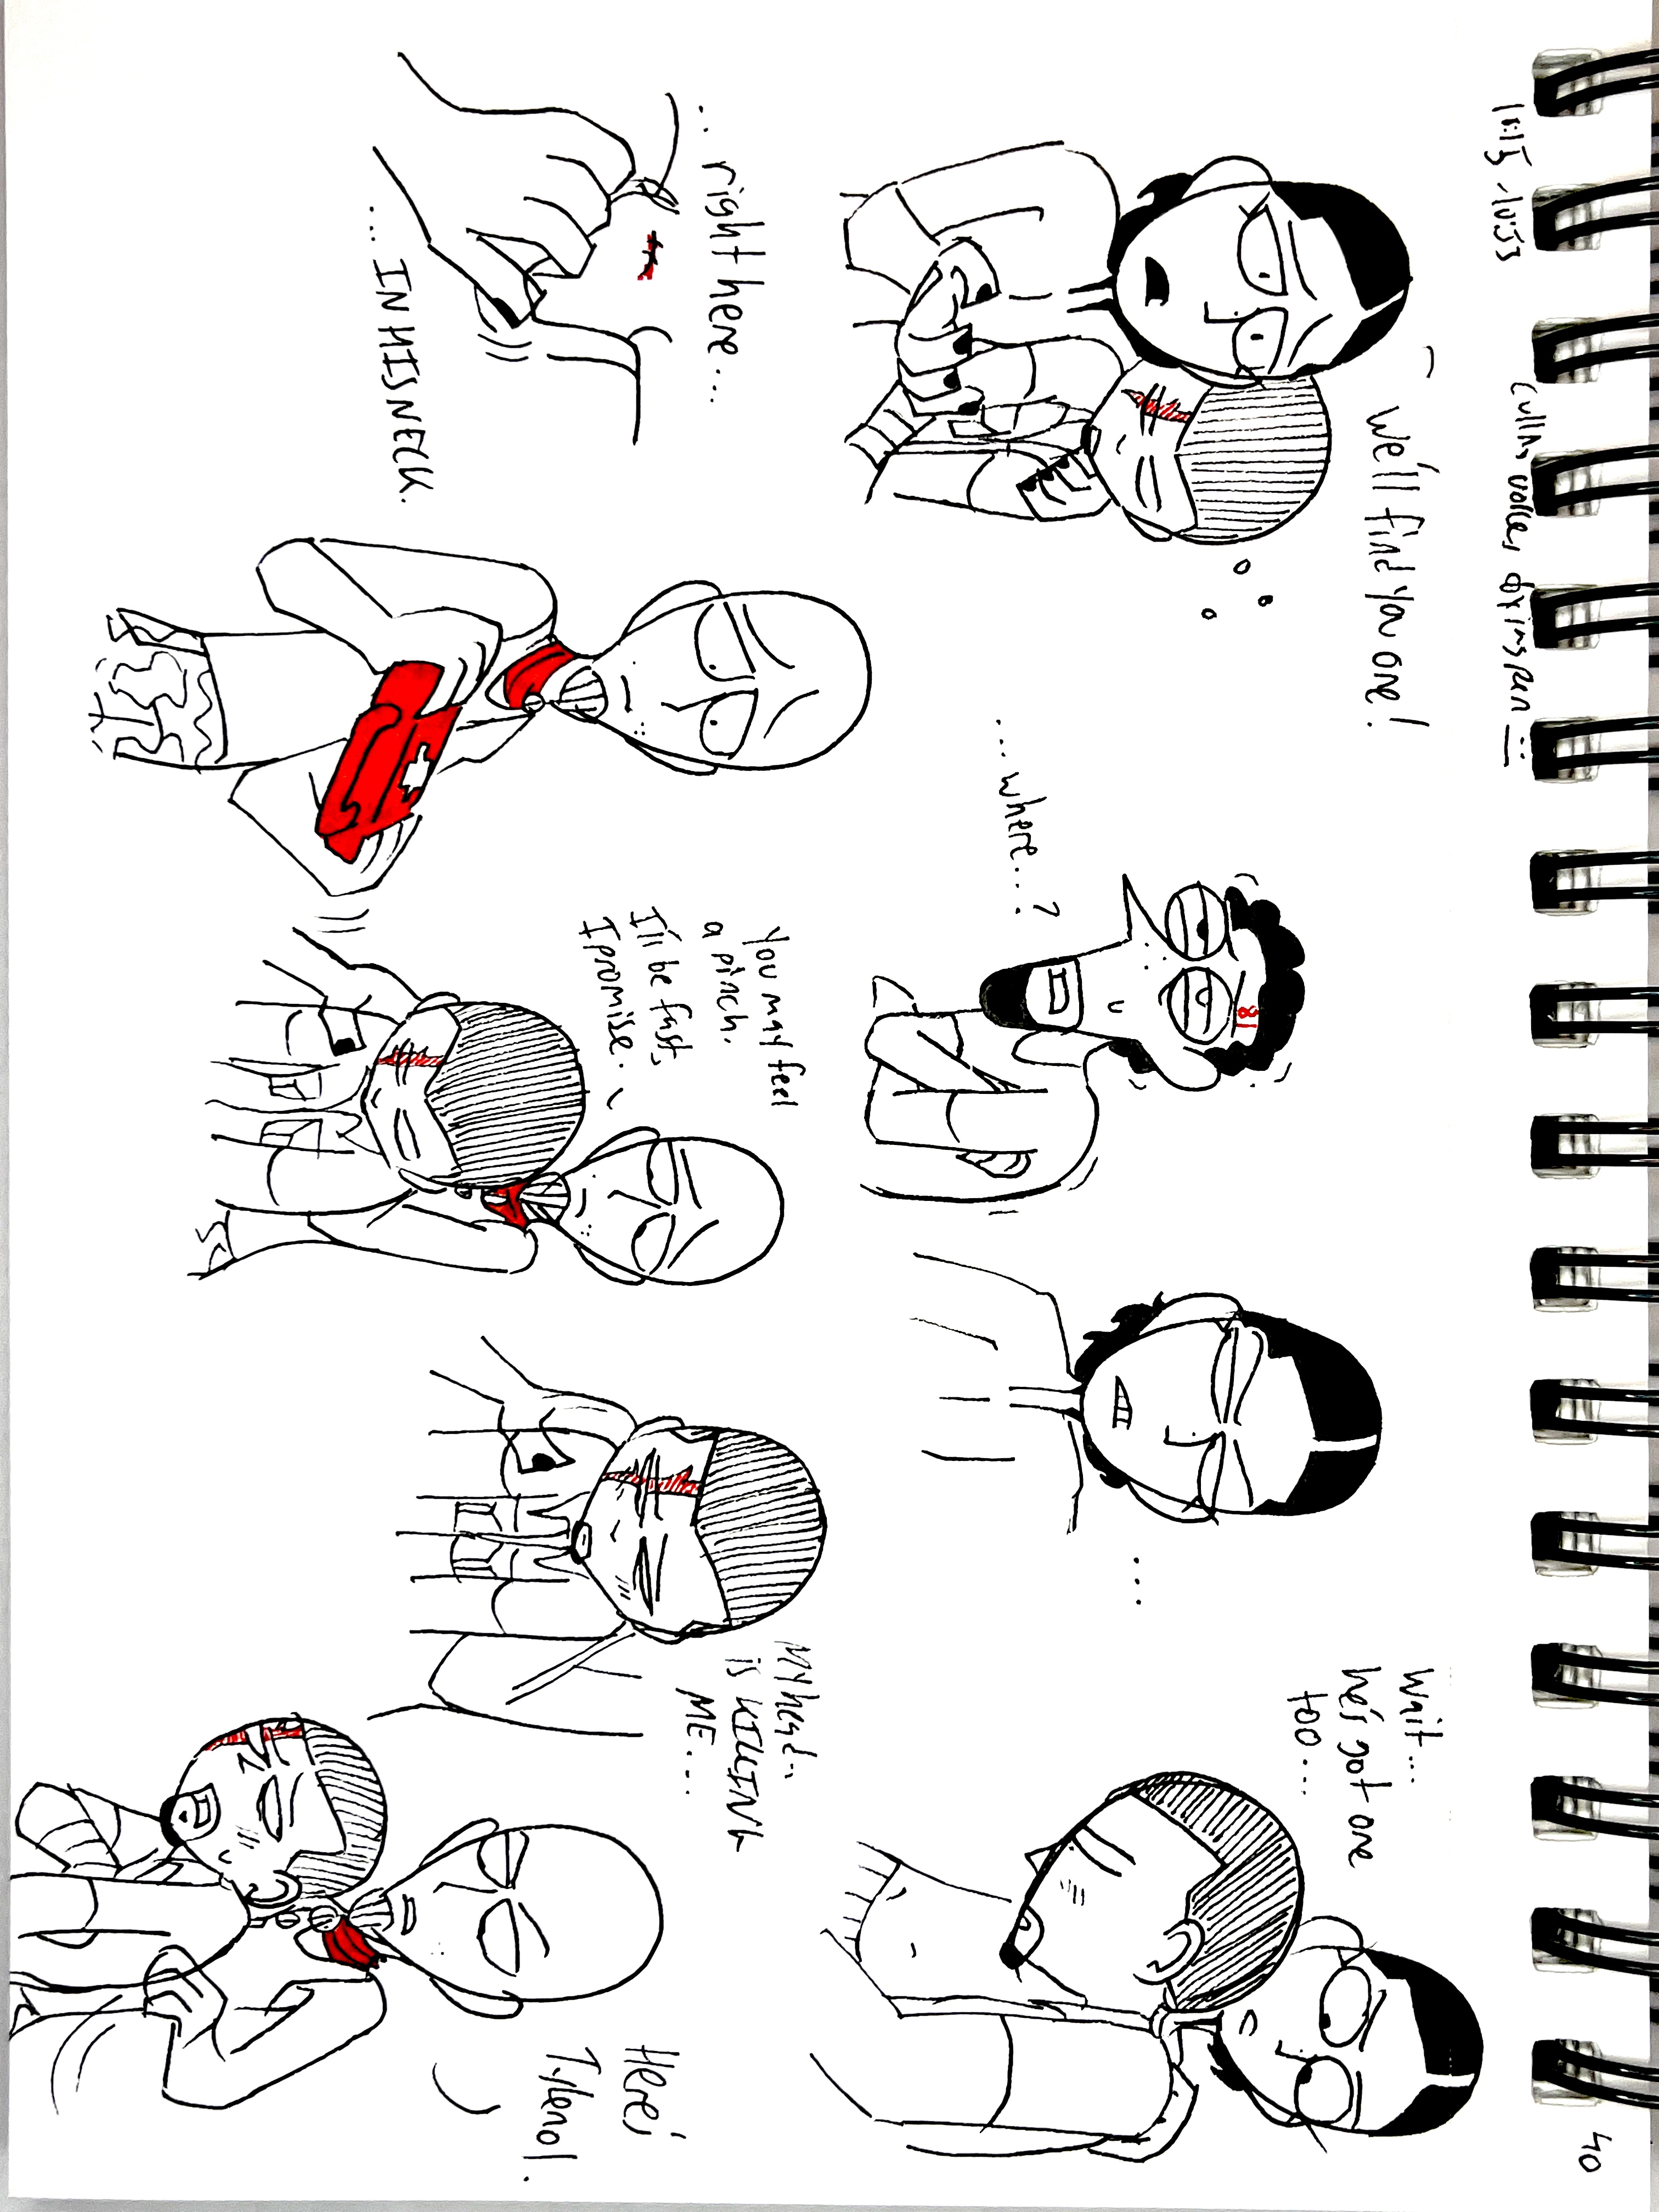 40
10:15 - 10:53
dying pen
We'll find you one!
...where...?
...
Wait...
he's got one
too...
...right here...
...IN HIS NECK.
You may feel
a pinch.
I'll be fast,
I promise.
My head..
is KILLING
ME...
Here's
Tylenol.
81